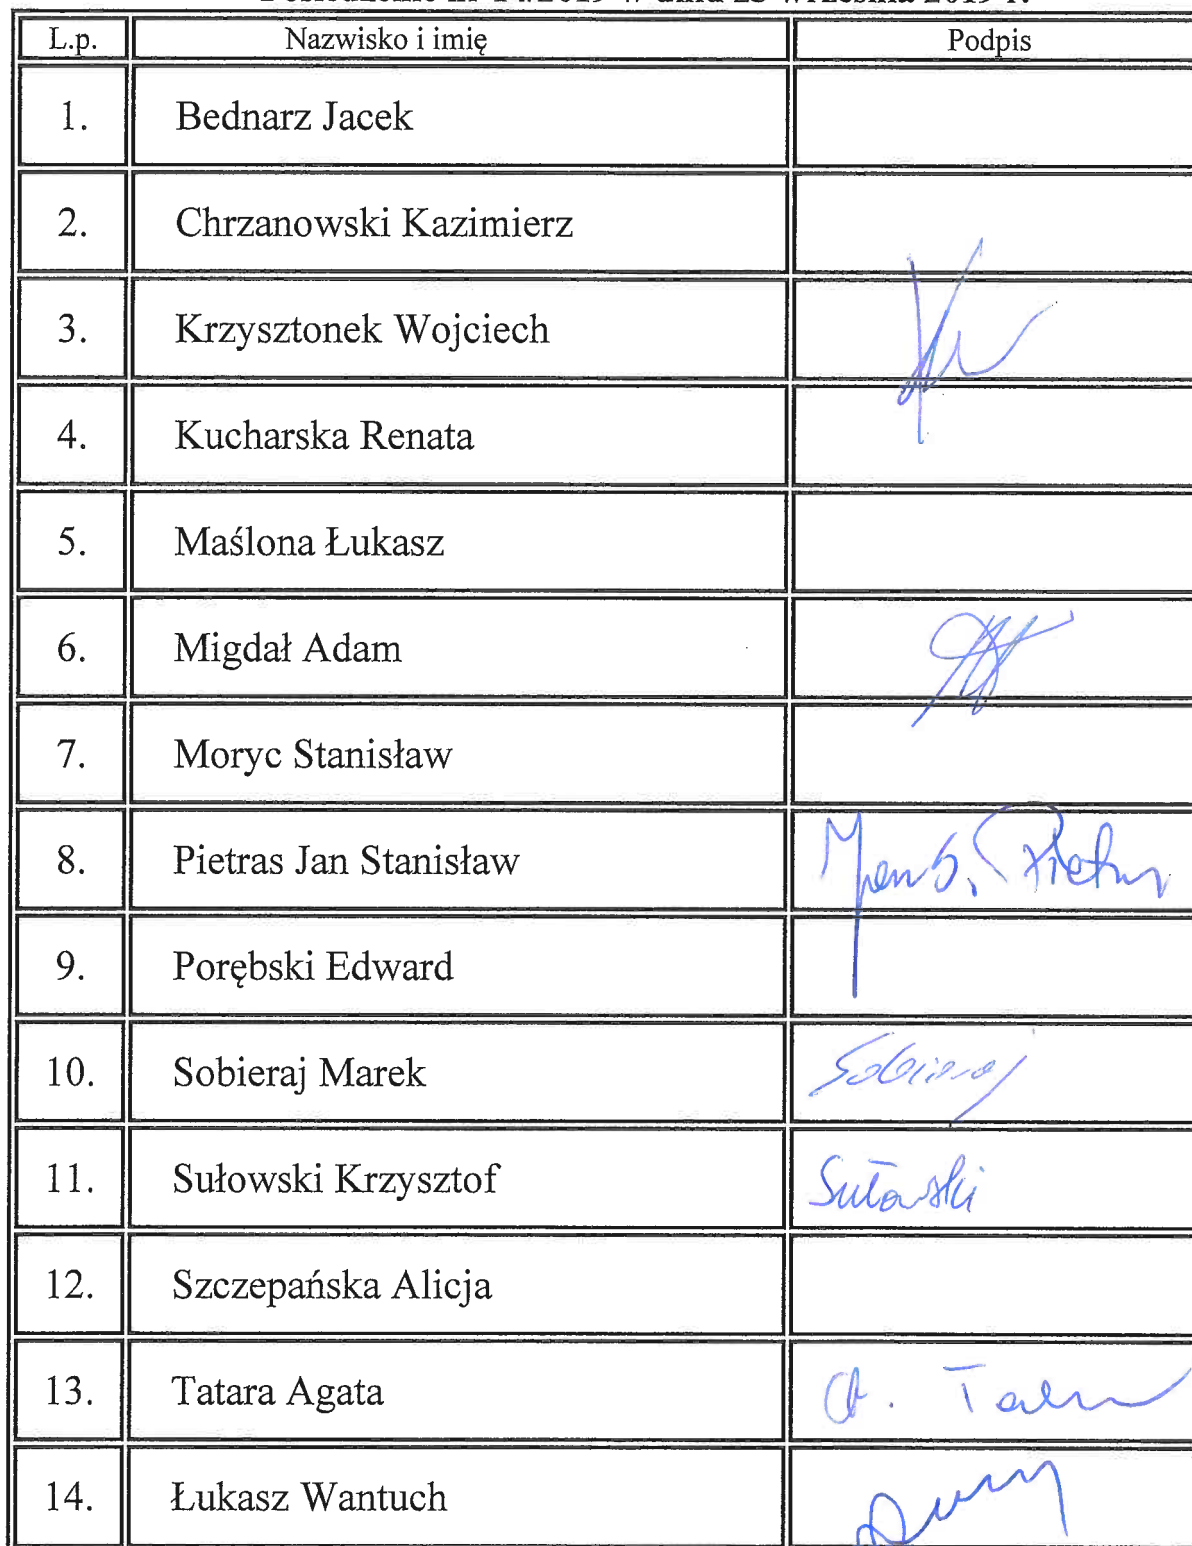 L.p. Nazwisko i imię Podpis
1. Bednarz Jacek
2. Chrzanowski Kazimierz
3. Krzysztonek Wojciech
4. Kucharska Renata
5. Maślona Łukasz
6. Migdał Adam
7. Moryc Stanisław
8. Pietras Jan Stanisław
9. Porębski Edward
10. Sobieraj Marek Sobieraj
11. Sułowski Krzysztof Sułowski
12. Szczepańska Alicja
13. Tatara Agata
14. Łukasz Wantuch